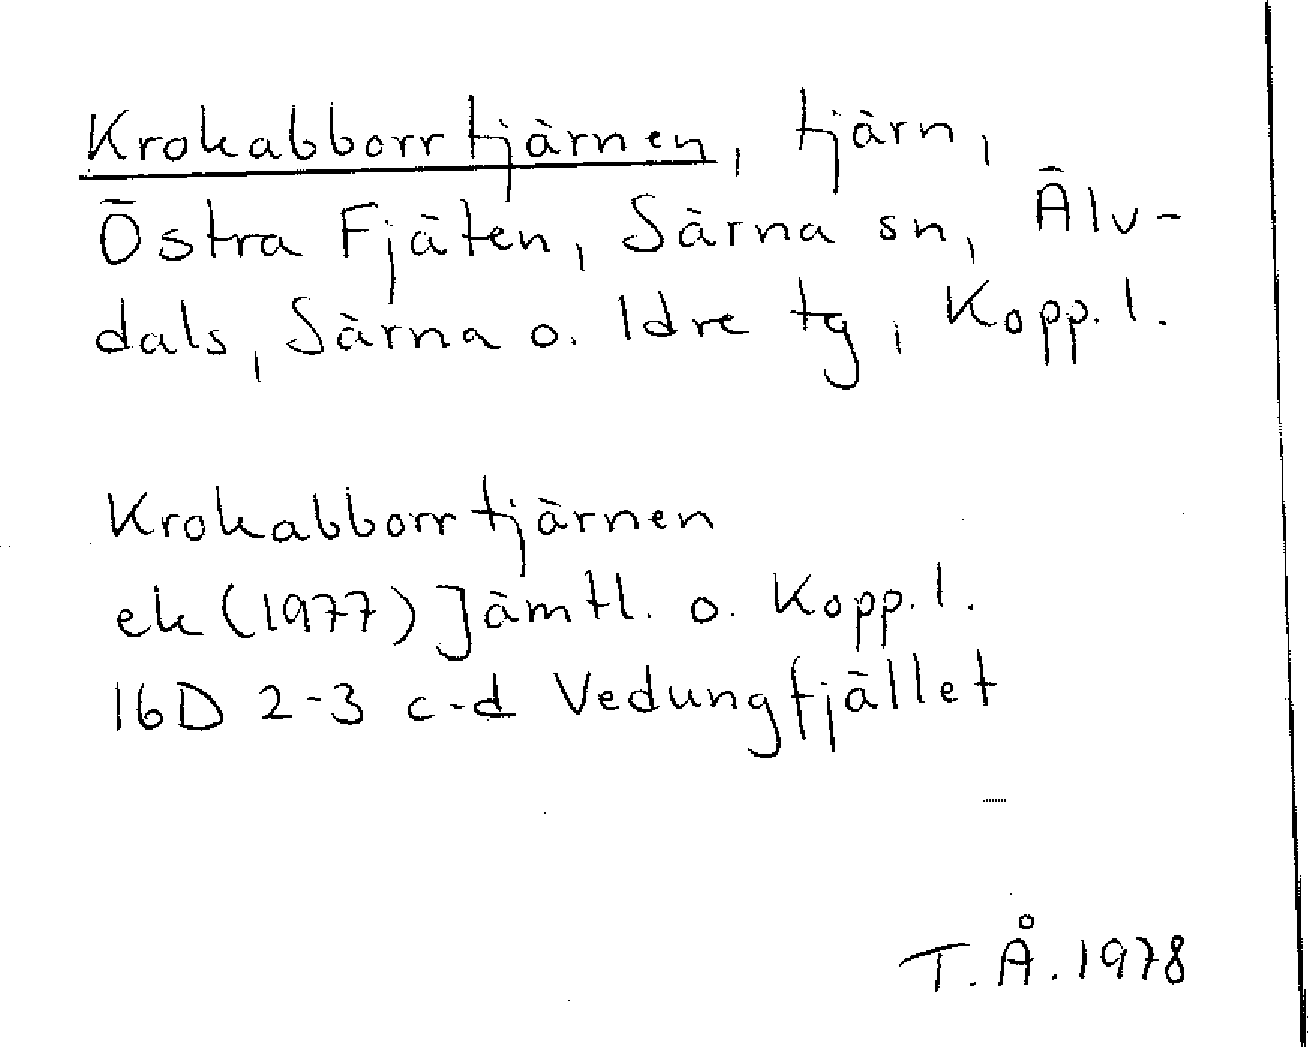 Krokabborrtjärnen, tjärn,
Östra Fjäten, Särna sn, Älv-
dals, Särna o. Idre tg, Kopp. l.
Krokabborrtjärnen
ek (1977) Jämtl. o. Kopp. l.
16D 2-3 c-d Vedungfjället
T. Å. 1978